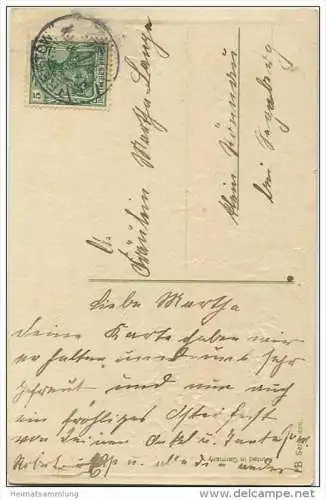 Fräulein Martha Lange
Klein Rönnau
bei Segeberg
Liebe Martha
deine Karte haben wir
erhalten und uns sehr
gefreut und nun auch
ein fröhliges Osterfest
von deinen Onkel u. Tante
Printed in Germany
Serie
Heimatsammlung
www.delcampe.net